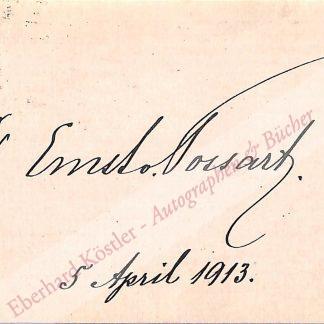 Ernst v. Possart.
5 April 1913.
Eberhard Köstler - Autographen & Bücher